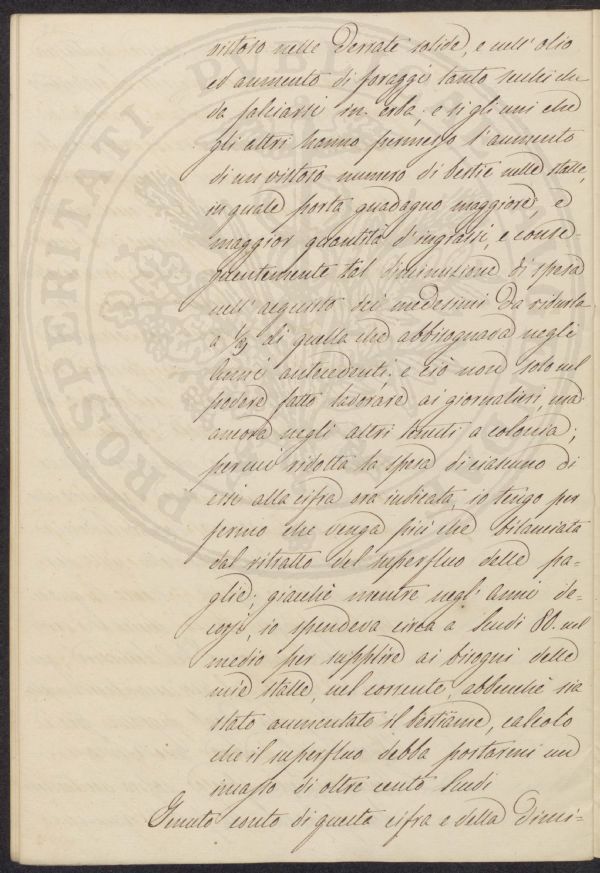 vistoso nelle Derrate solide, e nell' olio
ed aumento di foraggi tanto secchi che
da falciarsi in erba; e sì gli uni che
gli altri hanno permesso l'aumento
di un vistoso numero di bestie nelle stalle,
in quale porta guadagno maggiore, e
maggior quantità d'ingrassi, e conse-
guentemente tal diminuzione di spesa
nell' acquisto dei medesimi da ridurla
a 1/3 di quella che abbisognava negli
Anni antecedenti; e ciò non solo nel
podere fatto lavorare ai giornalieri, ma
ancora negli altri tenuti a colonia;
per cui ridotta la spesa di ciascuno di
essi alla cifra ora indicata, io tengo per
fermo che venga più che bilanciata
dal ritratto del superfluo delle pa-
glie; giacchè mentre negl' anni de-
corsi, io spendeva circa a Scudi 80. nel
medio per supplire ai bisogni delle
mie stalle, nel corrente, abbenchè sia
stato aumentato il bestiame, calcolo
che il superfluo debba portarmi un
incasso di oltre cento Scudi
Tenuto conto di questa cifra e della Dimi-
PROSPERITATI PUBLI